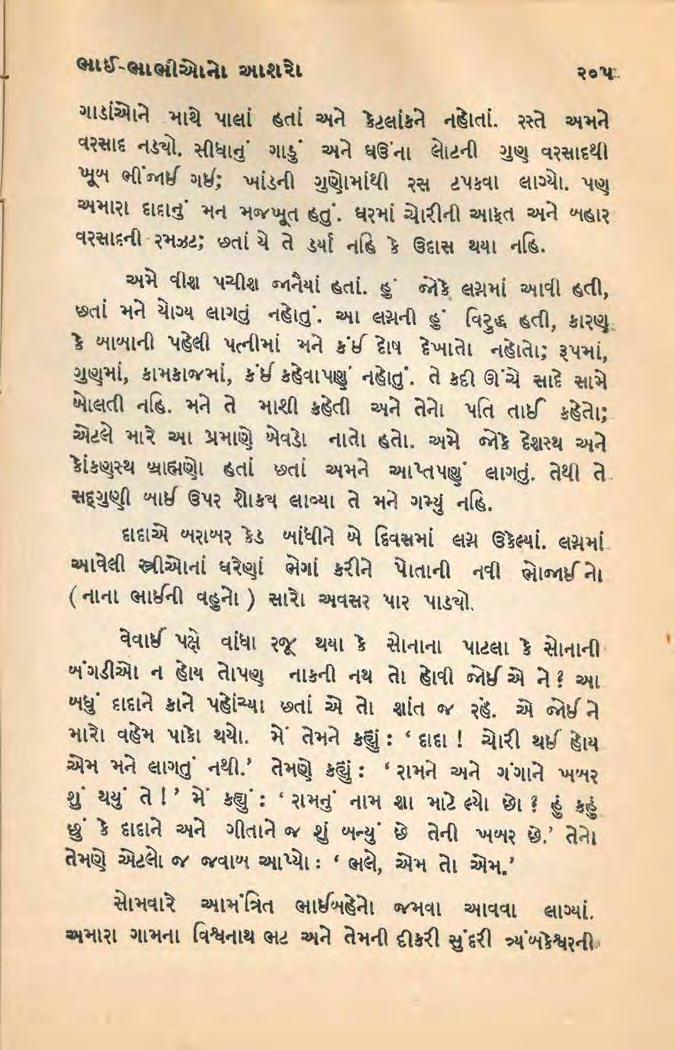 ભાઈ-ભાભીઓનો આશરો ૨૦૫
ગાડાંઓને માથે પાલાં હતાં અને કેટલાંકને નહોતાં. રસ્તે અમને
વરસાદ નડ્યો. સીધાનું ગાડું અને ઘઉંના લોટની ગુણુ વરસાદથી
ખૂબ ભીંજાઈ ગઈ; ખાંડની ગુણોમાંથી રસ ટપકવા લાગ્યો. પણ
અમારા દાદાનું મન મજબૂત હતું. ઘરમાં ચોરીની આફત અને બહાર
વરસાદની રમઝટ; છતાં યે તે ડર્યા નહિ કે ઉદાસ થયા નહિ.
અમે વીશ પચીશ જાનૈયાં હતાં. હું જોકે લગ્નમાં આવી હતી,
છતાં મને યોગ્ય લાગતું નહોતું. આ લગ્નની હું વિરુદ્ધ હતી, કારણ
કે બાબાની પહેલી પત્નીમાં મને કંઈ દોષ દેખાતો નહોતો; રૂપમાં,
ગુણમાં, કામકાજમાં, કંઈ કહેવાપણું નહોતું. તે કદી ઊંચે સાદે સામે
બોલતી નહિ. મને તે માશી કહેતી અને તેનો પતિ તાઈ કહેતો;
એટલે મારે આ પ્રમાણે બેવડો નાતો હતો. અમે જોકે દેશસ્થ અને
કોંકણસ્થ બ્રાહ્મણો હતાં છતાં અમને આપ્તપણું લાગતું. તેથી તે
સદ્ગુણી બાઈ ઉપર શોક્ય લાવ્યા તે મને ગમ્યું નહિ.
દાદાએ બરાબર કેડ બાંધીને બે દિવસમાં લગ્ન ઉકેલ્યાં. લગ્નમાં
આવેલી સ્ત્રીઓનાં ઘરેણાં ભેગાં કરીને પોતાની નવી ભોજાઈનો
(નાના ભાઈની વહુનો) સારો અવસર પાર પાડ્યો.
વેવાઈ પક્ષે વાંધા રજૂ થયા કે સોનાના પાટલા કે સોનાની
બંગડીઓ ન હોય તોપણ નાકની નથ તો હોવી જોઈએ ને? આ
બધું દાદાને કાને પહોંચ્યા છતાં એ તો શાંત જ રહે. એ જોઈને
મારો વહેમ પાકો થયો. મેં તેમને કહ્યું : ‘દાદા ! ચોરી થઈ હોય
એમ મને લાગતું નથી.’ તેમણે કહ્યું : ‘રામને અને ગંગાને ખબર
શું થયું તે !’ મેં કહ્યું : ‘રામનું નામ શા માટે લ્યો છો ? હું કહું
છું કે દાદાને અને ગીતાને જ શું બન્યું છે તેની ખબર છે.’ તેનો
તેમણે એટલો જ જવાબ આપ્યો : ‘ભલે, એમ તો એમ.’
સોમવારે આમંત્રિત ભાઈબહેનો જમવા આવવા લાગ્યાં.
અમારા ગામના વિશ્વનાથ ભટ અને તેમની દીકરી સુંદરી ત્ર્યંબકેશ્વરની